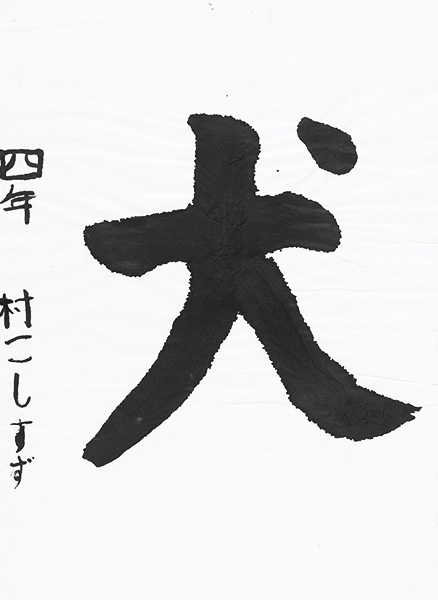 犬
四年 村こしすず